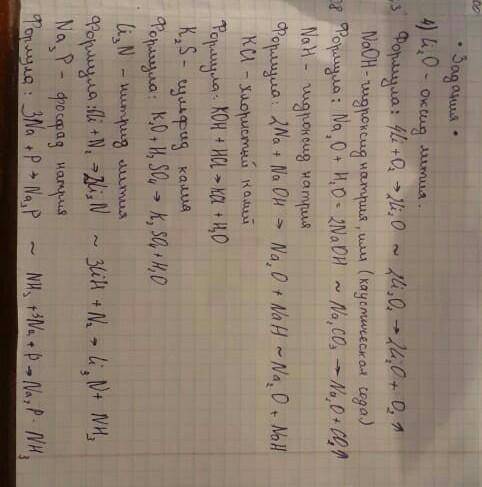 • Задания •
4) Li₂O - оксид лития.
Формула: 4Li + O₂ → 2Li₂O ~ 2Li₂O₂ → 2Li₂O + O₂↑
NaOH - гидроксид натрия, или (каустическая сода)
Формула: Na₂O + H₂O = 2NaOH ~ Na₂CO₃ → Na₂O + CO₂↑
NaH - гидроксид натрия
Формула: 2Na + NaOH → Na₂O + NaH ~ Na₂O + NaH
KCl - хлористый калий
Формула: KOH + HCl → KCl + H₂O
K₂S - сульфид калия
Формула: K₂O + H₂SO₄ → K₂SO₄ + H₂O
Li₃N - нитрид лития
Формула: Li + N₂ → 2Li₃N ~ 3LiH + N₂ → Li₃N + NH₃
Na₃P - фосфид натрия
Формула: 3Na + P → Na₃P ~ NH₃ + 3Na + P → Na₃P · NH₃